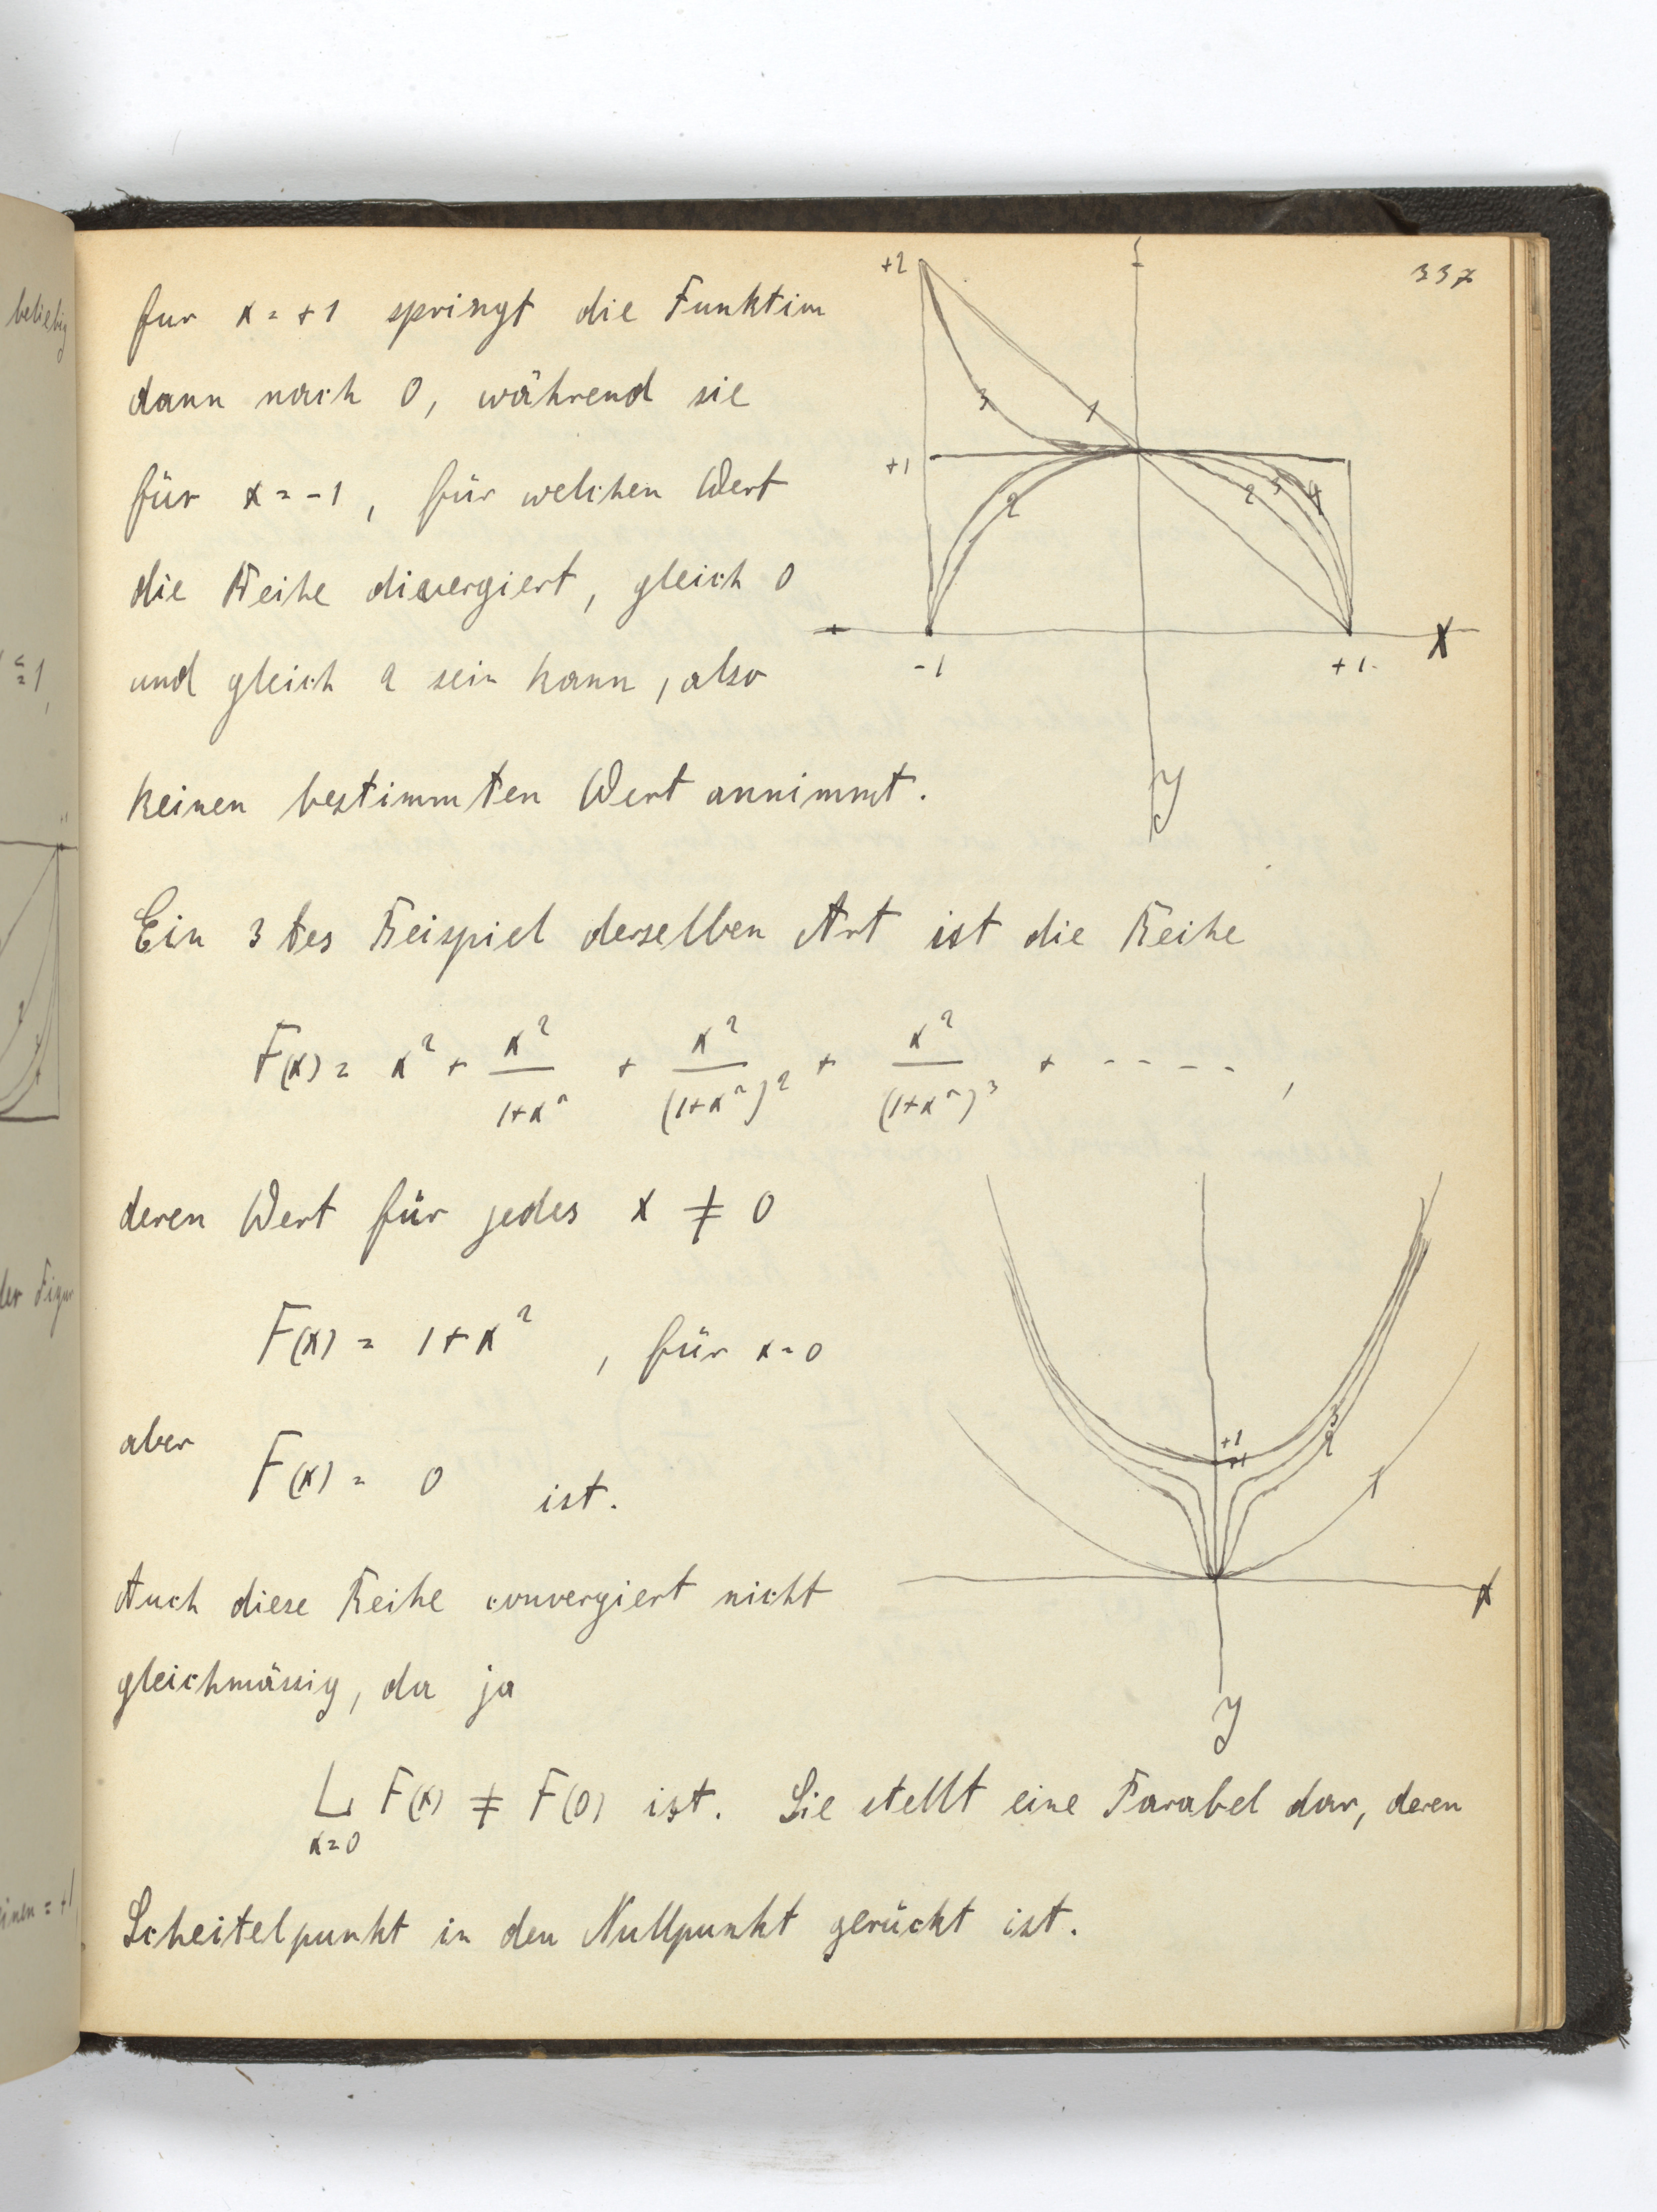 337
für x = +1 springt die Funktion
dann nach 0, während sie
für x = -1, für welchen Wert
die Reihe divergiert, gleich 0
und gleich 2 sein kann, also
keinen bestimmten Wert annimmt.
+2
+1
3
1
2
2
3
4
-1
+1
x
y
Ein 3tes Beispiel derselben Art ist die Reihe
F(x) = x² + x²/(1+x²) + x²/(1+x²)² + x²/(1+x²)³ + - - - - - ,
deren Wert für jedes x ≠ 0
F(x) = 1+x² , für x=0
aber
F(x) = 0 ist.
+1
3
2
1
x
y
Auch diese Reihe convergiert nicht
gleichmässig, da ja
L F(x) ≠ F(0) ist. Sie stellt eine Parabel dar, deren
x=0
Scheitelpunkt in den Nullpunkt gerückt ist.
beliebig
≦ 1,
der Figur
= +1